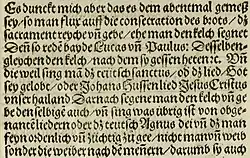 Es duncket mich aber das es dem abentmal gemeß
sey / so man flux auff die consecration des brots / d
sacrament reyche vn̄ gebe / ehe man den kelch segnet
Den so redē bayde Lucas vn̄ Paulus: Desselben
gleychen den kelch / nach dem sy gessen hetten ec. Vn̄
die weil sing mā dz teütsch sanctus / od dz lied / Got
sey gelobt / oder Johans Hussen lied Jesus Cristus
vnser hailand Darnach segene man den kelch vn̄ ge
be den selbigē auch / vn̄ sing was übrig ist von obge
nantē liedern oder dz teutsch Agnus dei vn̄ dz man
feyn ordenlich vn̄ züchtig zů gee / nicht man vn̄ weib
sonder die weiber nach dē mēnern / darumb sy auch